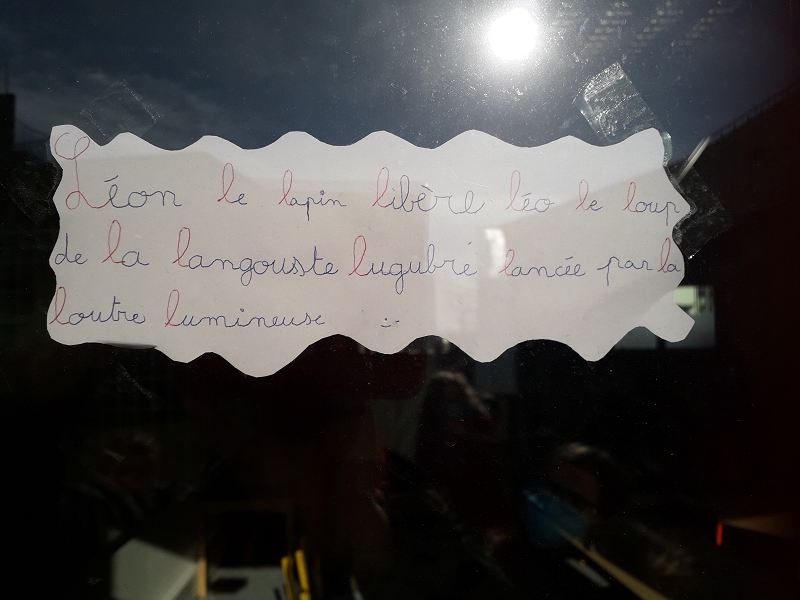 Léon le lapin libère léo le loup
de la langouste lugubré lancée par la
loutre lumineuse :-